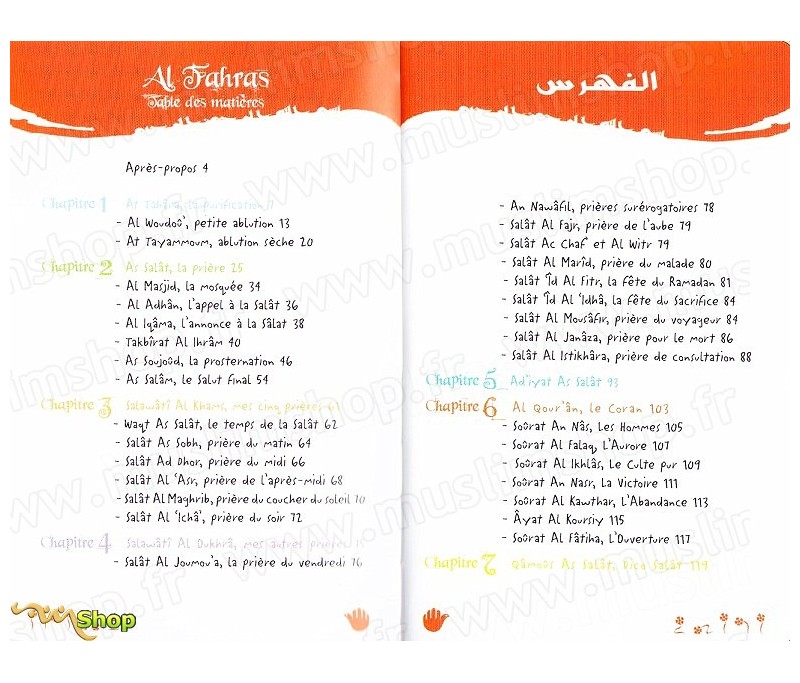 Al Fahras
Table des matières
Après-propos 4
Chapitre 1 At Tahâra, la purification 7
- Al Woudoû', petite ablution 13
- At Tayammoum, ablution sèche 20
Chapitre 2 As Salât, la prière 25
- Al Masjid, la mosquée 34
- Al Adhân, l'appel à la Salât 36
- Al Iqâma, l'annonce à la Sâlat 38
- Takbîrat Al Ihrâm 40
- As Soujoûd, la prosternation 46
- As Salâm, le Salut final 54
Chapitre 3 Salawâtî Al Khams, mes cinq prières 61
- Waqt As Salât, le temps de la Salât 62
- Salât As Sobh, prière du matin 64
- Salât Ad Dhor, prière du midi 66
- Salât Al 'Asr, prière de l'après-midi 68
- Salât Al Maghrib, prière du coucher du soleil 70
- Salât Al 'Ichâ', prière du soir 72
Chapitre 4 Salawâtî Al Oukhrâ, mes autres prières
- Salât Al Joumou'a, la prière du vendredi 76
الفهرس
- An Nawâfil, prières surérogatoires 78
- Salât Al Fajr, prière de l'aube 79
- Salât Ac Chaf et Al Witr 79
- Salât Al Marîd, prière du malade 80
- Salât Îd Al Fitr, la fête du Ramadan 81
- Salât Îd Al 'Idhâ, la fête du Sacrifice 84
- Salât Al Mousâfir, prière du voyageur 84
- Salât Al Janâza, prière pour le mort 86
- Salât Al Istikhâra, prière de consultation 88
Chapitre 5 Ad'iyat As Salât 93
Chapitre 6 Al Qour'ân, le Coran 103
- Soûrat An Nâs, Les Hommes 105
- Soûrat Al Falaq, L'Aurore 107
- Soûrat Al Ikhlâs, Le Culte pur 109
- Soûrat An Nasr, La Victoire 111
- Soûrat Al Kawthar, L'Abandance 113
- Âyat Al Koursiy 115
- Soûrat Al Fâtiha, L'Ouverture 117
Chapitre 7 Qâmoûs As Salât, Dico Salât 119
Shop
www.muslimshop.fr